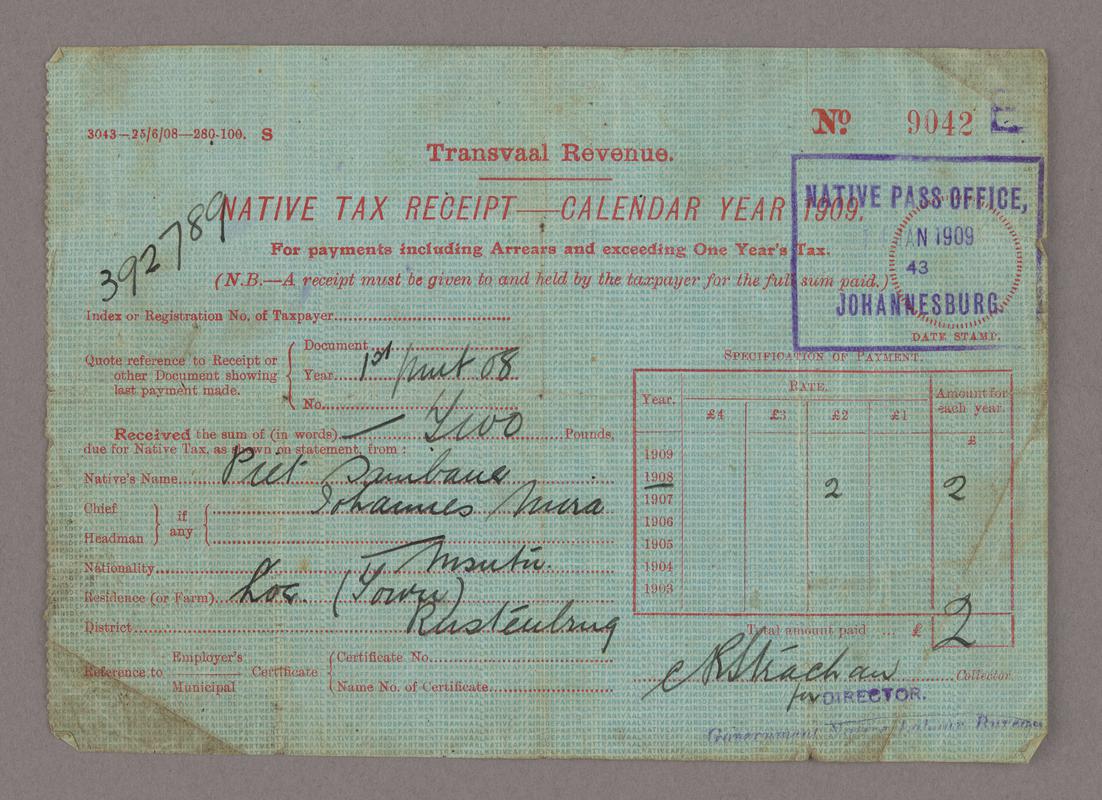 3043—25/6/08—280-100. S
Nº 9042 E
Transvaal Revenue.
NATIVE TAX RECEIPT—CALENDAR YEAR 1909.
For payments including Arrears and exceeding One Year's Tax.
(N.B.—A receipt must be given to and held by the taxpayer for the full sum paid.)
392789
NATIVE PASS OFFICE,
AN 1909
43
JOHANNESBURG
DATE STAMP.
Index or Registration No. of Taxpayer
Quote reference to Receipt or other Document showing last payment made.
Document
Year 1st 08
No.
Received the sum of (in words) — Two Pounds,
due for Native Tax, as shown on statement, from :
Native's Name Piet
Chief Johannes
Headman
if any
Nationality
Residence (or Farm) Loc. (Town)
District Rustenburg
Reference to Employer's Municipal Certificate
Certificate No.
Name No. of Certificate
SPECIFICATION OF PAYMENT.
Year. RATE. Amount for each year.
£4 £3 £2 £1
£
1909
1908
1907 2 2
1906
1905
1904
1903
Total amount paid ... £ 2
Strachan Collector.
for DIRECTOR.
Government Native Labour Bureau